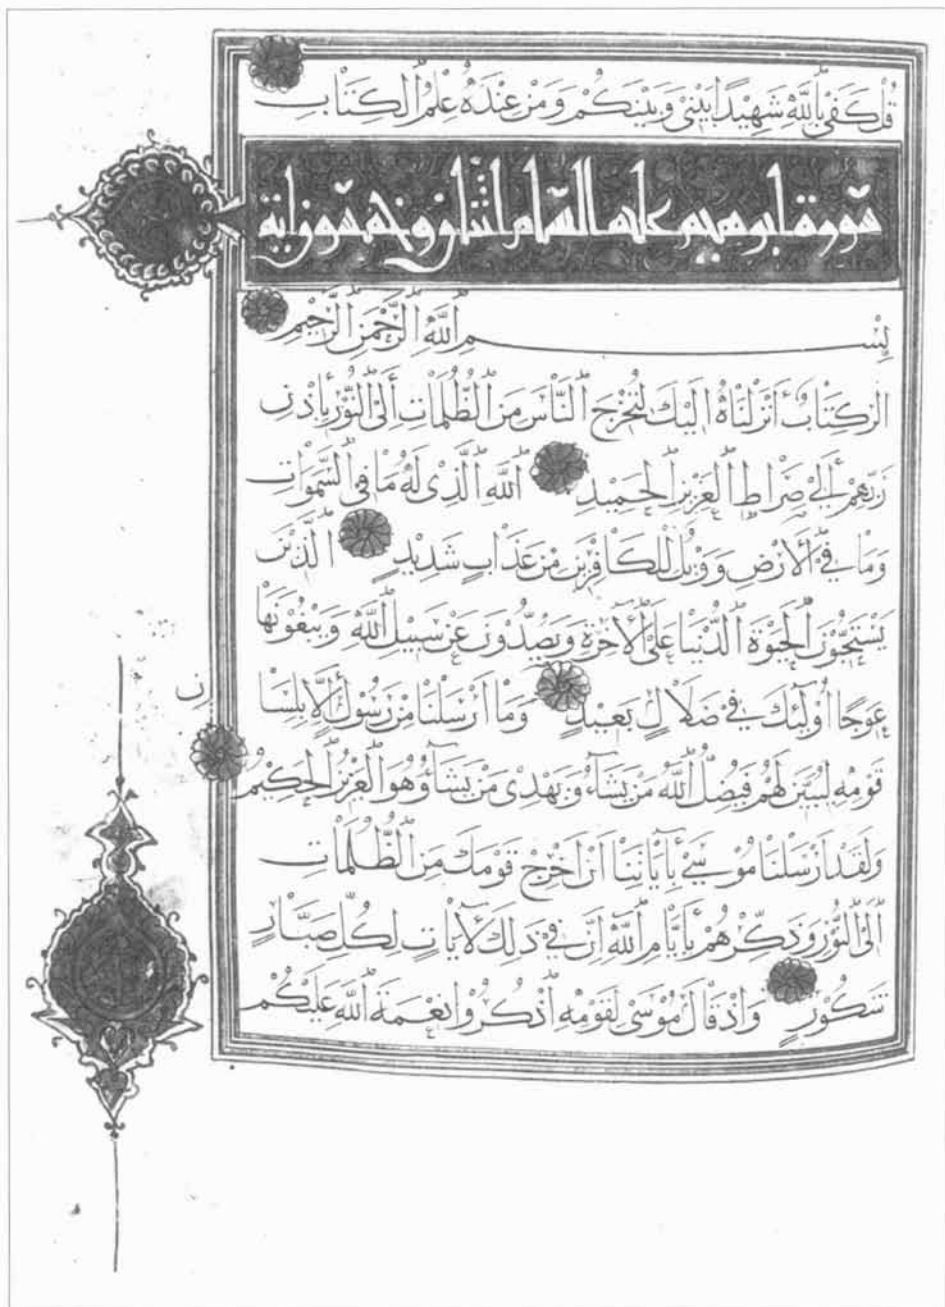 قُلْ كَفَىٰ بِاللَّهِ شَهِيدًا بَيْنِي وَبَيْنَكُمْ وَمَنْ عِنْدَهُ عِلْمُ الْكِتَابِ
سورة ابرهيم عليه السلام اثنان وخمسون اية
بِسْمِ اللَّهِ الرَّحْمَٰنِ الرَّحِيمِ
الر كِتَابٌ أَنْزَلْنَاهُ إِلَيْكَ لِتُخْرِجَ النَّاسَ مِنَ الظُّلُمَاتِ إِلَى النُّورِ بِإِذْنِ
رَبِّهِمْ إِلَى صِرَاطِ الْعَزِيزِ الْحَمِيدِ اللَّهِ الَّذِي لَهُ مَا فِي السَّمَوَاتِ
وَمَا فِي الْأَرْضِ وَوَيْلٌ لِلْكَافِرِينَ مِنْ عَذَابٍ شَدِيدٍ الَّذِينَ
يَسْتَحِبُّونَ الْحَيَوةَ الدُّنْيَا عَلَى الْآخِرَةِ وَيَصُدُّونَ عَنْ سَبِيلِ اللَّهِ وَيَبْغُونَهَا
عِوَجًا أُولَئِكَ فِي ضَلَالٍ بَعِيدٍ وَمَا أَرْسَلْنَا مِنْ رَسُولٍ إِلَّا بِلِسَانِ
قَوْمِهِ لِيُبَيِّنَ لَهُمْ فَيُضِلُّ اللَّهُ مَنْ يَشَاءُ وَيَهْدِي مَنْ يَشَاءُ وَهُوَ الْعَزِيزُ الْحَكِيمُ
وَلَقَدْ أَرْسَلْنَا مُوسَى بِآيَاتِنَا أَنْ أَخْرِجْ قَوْمَكَ مِنَ الظُّلُمَاتِ
إِلَى النُّورِ وَذَكِّرْهُمْ بِأَيَّامِ اللَّهِ إِنَّ فِي ذَلِكَ لَآيَاتٍ لِكُلِّ صَبَّارٍ
شَكُورٍ وَإِذْ قَالَ مُوسَى لِقَوْمِهِ اذْكُرُوا نِعْمَةَ اللَّهِ عَلَيْكُمْ